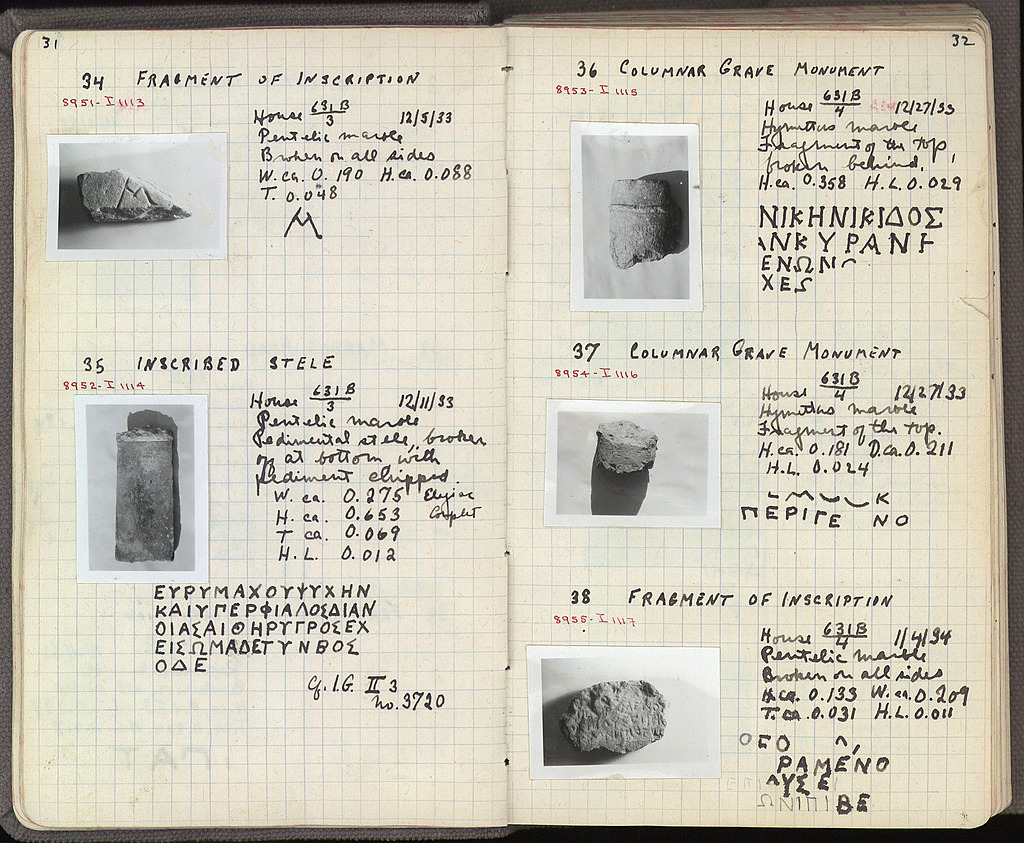 31
34 FRAGMENT OF INSCRIPTION
8951-I 1113
House 631B/3 12/5/33
Pentelic marble
Broken on all sides
W. ca. 0.190 H. ca. 0.088
T. 0.048
35 INSCRIBED STELE
8952-I 1114
House 631B/3 12/11/33
Pentelic marble
Pedimental stele, broken
off at bottom with
pediment chipped.
W. ca. 0.275 Elegiac
H. ca. 0.653 Couplet
T ca. 0.069
H. L. 0.012
ΕΥΡΥΜΑΧΟΥΨΥΧΗΝ
ΚΑΙΥΠΕΡΦΙΑΛΟΣΔΙΑΝ
ΟΙΑΣΑΙΘΗΡΥΓΡΟΣΕΧ
ΕΙΣΩΜΑΔΕΤΥΝΒΟΣ
ΟΔΕ
Cf. I.G. II 3
No. 3720
32
36 COLUMNAR GRAVE MONUMENT
8953-I 1115
House 631B/4 12/27/33
Hymettus marble
Fragment of the top,
broken behind.
H. ca. 0.358 H.L. 0.029
ΝΙΚΗΝΙΚΙΔΟΣ
ΑΝΚΥΡΑΝΗ
ΕΝΩΝ
ΧΕΣ
37 COLUMNAR GRAVE MONUMENT
8954-I 1116
House 631B/4 12/27/33
Hymettus marble
Fragment of the top.
H. ca. 0.181 D. ca. 0.211
H.L. 0.024
Κ
ΠΕΡΙΓΕ ΝΟ
38 FRAGMENT OF INSCRIPTION
8955-I 1117
House 631B/4 1/4/34
Pentelic marble
Broken on all sides
H. ca. 0.133 W. ca. 0.209
T. ca. 0.031 H.L. 0.011
ΡΑΜΕΝΟ
ΥΣΕ
ΩΝΙΠΙΒΕ